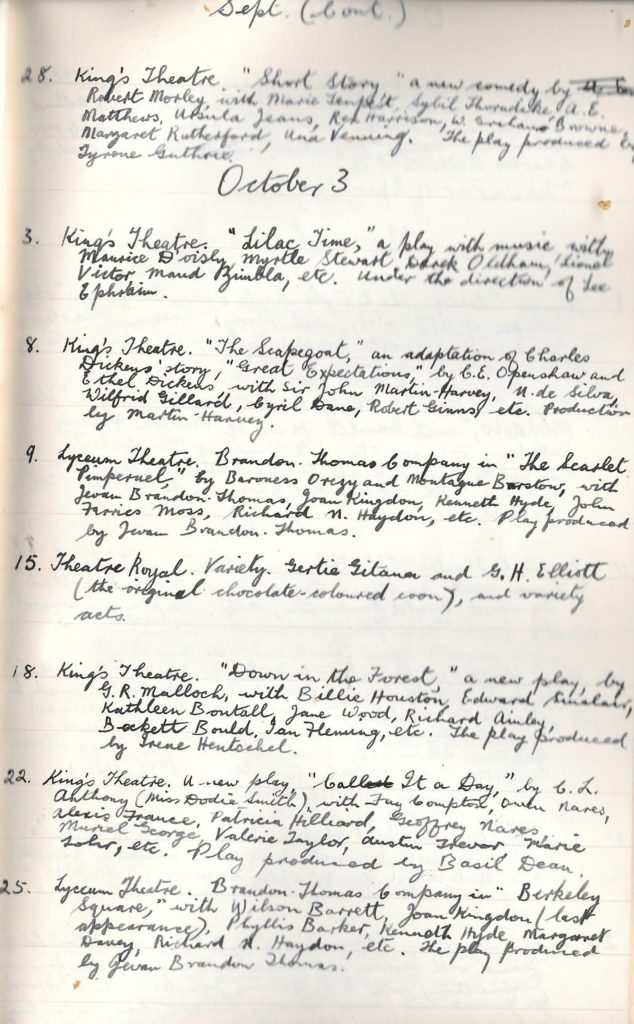 Sept. (Cont.)
28. King's Theatre. "Short Story" a new comedy by
Robert Morley, with Marie Tempest, Sybil Thorndike, A.E.
Matthews, Ursula Jeans, Rex Harrison, W. Graham Browne,
Margaret Rutherford, Una Venning. The play produced by
Tyrone Guthrie.
October 3
3. King's Theatre. "Lilac Time," a play with music with
Maurice D'oisly, Myrtle Stewart, Derek Oldham, Lionel
Victor, Maud Zimbla, etc. Under the direction of Lee
Ephraim.
8. King's Theatre. "The Scapegoat," an adaptation of Charles
Dickens story, "Great Expectations," by C.E. Openshaw and
Ethel Dickens with Sir John Martin-Harvey, N. de Silva,
Wilfrid Gillard, Cyril Dane, Robert Ginns, etc. Production
by Martin-Harvey.
9. Lyceum Theatre. Brandon-Thomas Company in "The Scarlet
Pimpernel," by Baroness Orczy and Montague Barstow, with
Jevan Brandon-Thomas, Joan Kingdon, Kenneth Hyde, John
Farries Moss, Richard N. Haydon, etc. Play produced
by Jevan Brandon-Thomas.
15. Theatre Royal. Variety. Gertie Gitana and G.H. Elliott
(the original chocolate-coloured coon), and variety
acts.
18. King's Theatre. "Down in the Forest," a new play, by
G.R. Malloch, with Billie Houston, Edward Sinclair,
Kathleen Boutall, Jane Wood, Richard Ainley,
Beckett Bould, Ian Fleming, etc. The play produced
by Irene Hentschel.
22. King's Theatre. A new play, "Call It a Day," by C.L.
Anthony (Miss Dodie Smith), with Fay Compton, Owen Nares,
Alexis France, Patricia Hilliard, Geoffrey Nares,
Muriel George, Valerie Taylor, Austin Trevor, Marie
Lohr, etc. Play produced by Basil Dean.
25. Lyceum Theatre. Brandon-Thomas Company in "Berkeley
Square," with Wilson Barrett, Joan Kingdon (last
appearance), Phyllis Barker, Kenneth Hyde, Margaret
Davey, Richard N. Haydon, etc. The play produced
by Jevan Brandon Thomas.